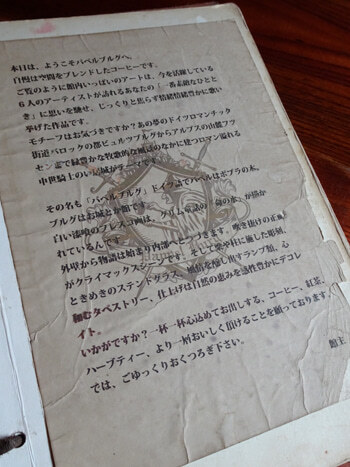 本日は、ようこそパペルブルグへ。
自慢は空間をブレンドしたコーヒーです。
ご覧のように館内いっぱいのアートは、今を活躍している
6人のアーティストが訪れるあなたの「一番素敵なひとと
き」に思いを馳せ、じっくりと焦らず情緒情緒豊かに歌い
挙げた作品です。
モチーフはお気づきですか?あの夢のドイツロマンチック
街道バロックの都ビュルツブルグからアルプスの山麓フッ
センまで緑豊かな牧歌的な
のなかに建つロマン溢れる
中世騎士の
城がテーマです。
その名も「パペルブルグ」ドイツ語でパペルはポプラの木、
ブルグはお城とか館です。
白い漆喰のフレスコ画は、グリム童話の「
の水」が描か
れているんです。
外壁から物語は始まり内部へとつづきます。吹き抜けの正面
がクライマックスシーンです。そして梁や柱に施した彫刻、
ときめきのステンドグラス、
情を醸し出すランプ類、心
和むタペストリー、仕上げは自然の恵みを感性豊かにデコレ
イト。
いかがですか?一杯一杯心込めてお出しする、コーヒー、紅茶、
ハーブティー、より一層おいしく頂けることを願っております。
では、ごゆっくりおくつろぎ下さい。
館主